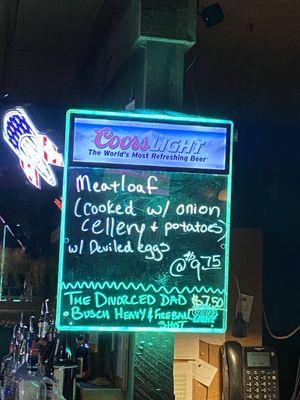 Coors LIGHT
The World's Most Refreshing Beer
Meatloaf
(cooked w/ onion
cellery + potatoes)
w/ Deviled eggs
@ $9.75
THE DIVORCED DAD $7.50
BUSCH HEAVY & FIREBALL
SHOT
Coors
LIGHT